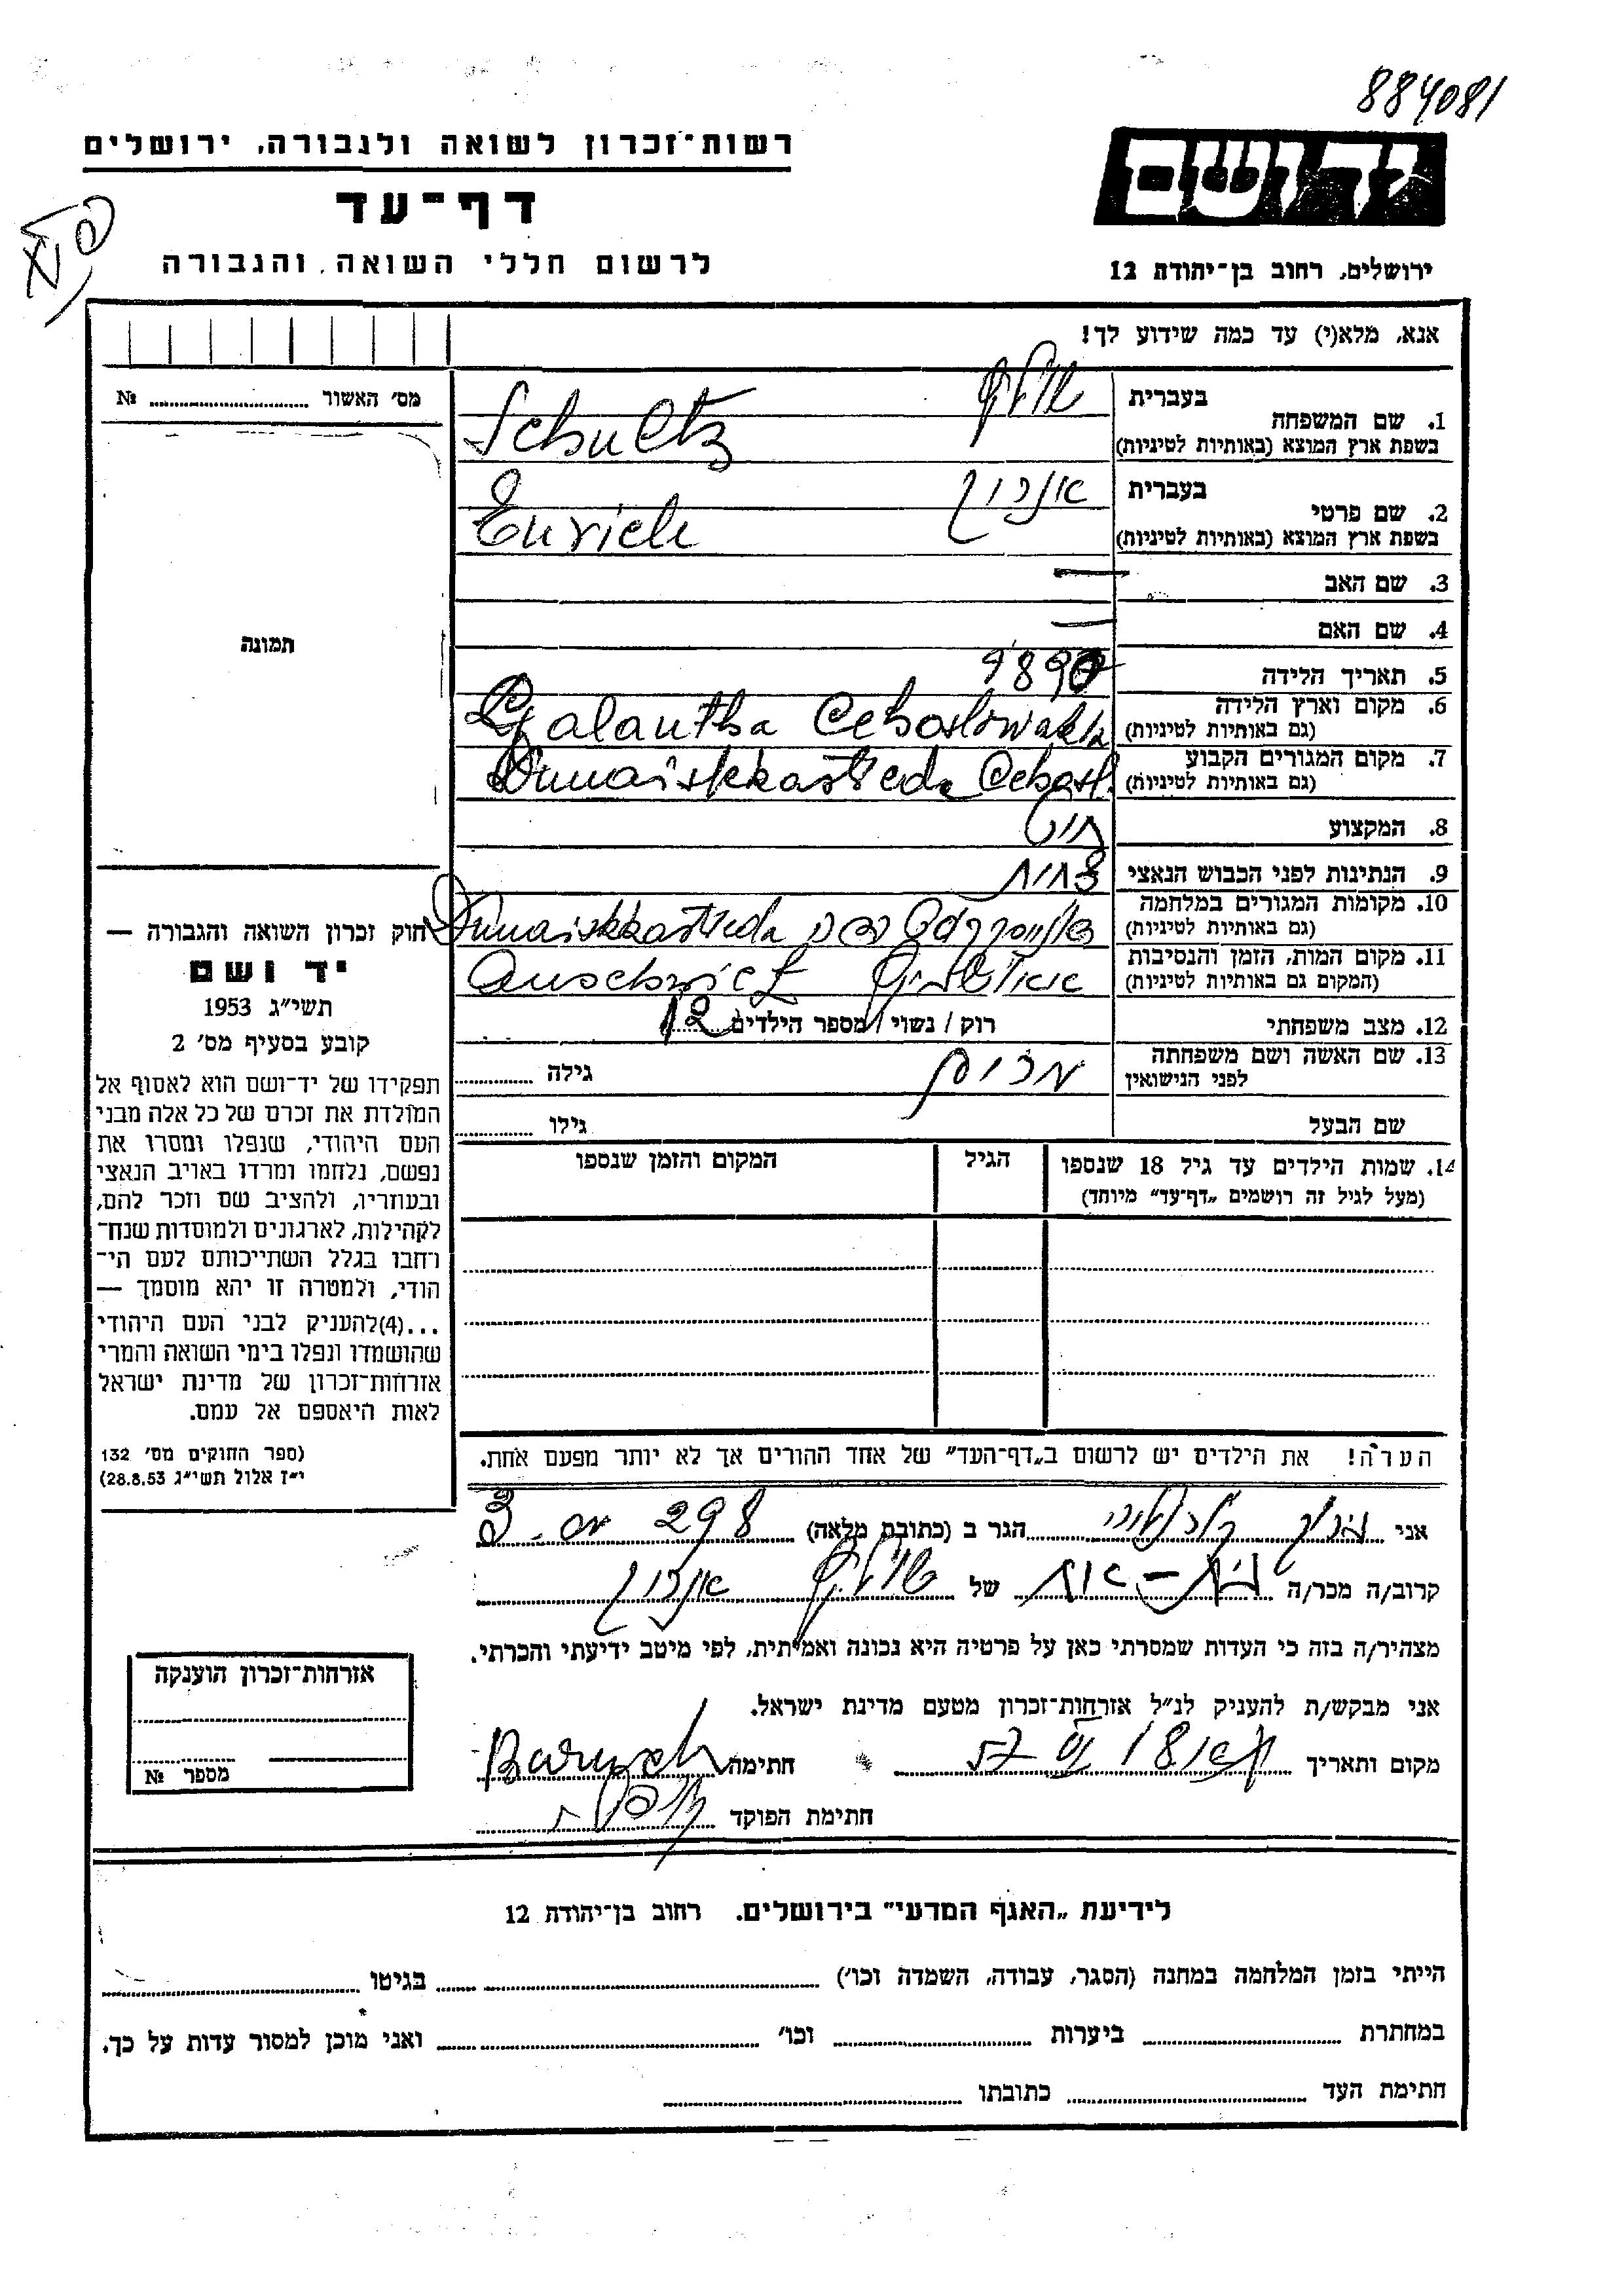 884081
רשות־זכרון לשואה ולגבורה, ירושלים
דף־עד
לרשום חללי השואה והגבורה
יד ושם
ירושלים, רחוב בן־יהודה 12
אנא, מלא(י) עד כמה שידוע לך!
מס׳ האשור № 
1. שם המשפחה
בעברית שולץ
בשפת ארץ המוצא (באותיות לטיניות) Schultz
2. שם פרטי
בעברית
בשפת ארץ המוצא (באותיות לטיניות) Enrich
3. שם האב —
4. שם האם —
5. תאריך הלידה 1890
6. מקום וארץ הלידה
(גם באותיות לטיניות) Galantha
7. מקום המגורים הקבוע
(גם באותיות לטיניות) Dunaiskkastreda
8. המקצוע
9. הנתינות לפני הכבוש הנאצי
10. מקומות המגורים במלחמה
(גם באותיות לטיניות) Dunaiskkastreda
11. מקום המות, הזמן והנסיבות
(המקום גם באותיות לטיניות)
12. מצב משפחתי רוק / נשוי / מספר הילדים 12
13. שם האשה ושם משפחתה
לפני הנישואין גילה
שם הבעל גילו
14. שמות הילדים עד גיל 18 שנספו
(מעל לגיל זה רושמים „דף־עד” מיוחד)
הגיל
המקום והזמן שנספו
הערה! את הילדים יש לרשום ב„דף־העד” של אחד ההורים אך לא יותר מפעם אחת.
תמונה
חוק זכרון השואה והגבורה —
יד ושם
תשי״ג 1953
קובע בסעיף מס׳ 2
תפקידו של יד־ושם הוא לאסוף אל
המולדת את זכרם של כל אלה מבני
העם היהודי, שנפלו ומסרו את
נפשם, נלחמו ומרדו באויב הנאצי
ובעוזריו, ולהציב שם וזכר להם,
לקהילות, לארגונים ולמוסדות שנח־
רחבו בגלל השתייכותם לעם הי־
הודי, ולמטרה זו יהא מוסמך —
...(4)להעניק לבני העם היהודי
שהושמדו ונפלו בימי השואה והמרי
אזרחות־זכרון של מדינת ישראל
לאות היאספם אל עמם.
(ספר החוקים מס׳ 132
י״ז אלול תשי״ג 28.8.53)
אני ברוך הגר ב (כתובת מלאה) 298
קרוב/ה מכר/ה בת-אחות של שולץ
מצהיר/ה בזה כי העדות שמסרתי כאן על פרטיה היא נכונה ואמיתית, לפי מיטב ידיעתי והכרתי.
אני מבקש/ת להעניק לנ״ל אזרחות־זכרון מטעם מדינת ישראל.
מקום ותאריך חתימה Baruch
חתימת הפוקד
אזרחות־זכרון הוענקה
מספר №
לידיעת „האגף המדעי” בירושלים. רחוב בן־יהודה 12
הייתי בזמן המלחמה במחנה (הסגר, עבודה, השמדה וכו׳) בגיטו
במחתרת ביערות וכו׳ ואני מוכן למסור עדות על כך.
חתימת העד כתובתו